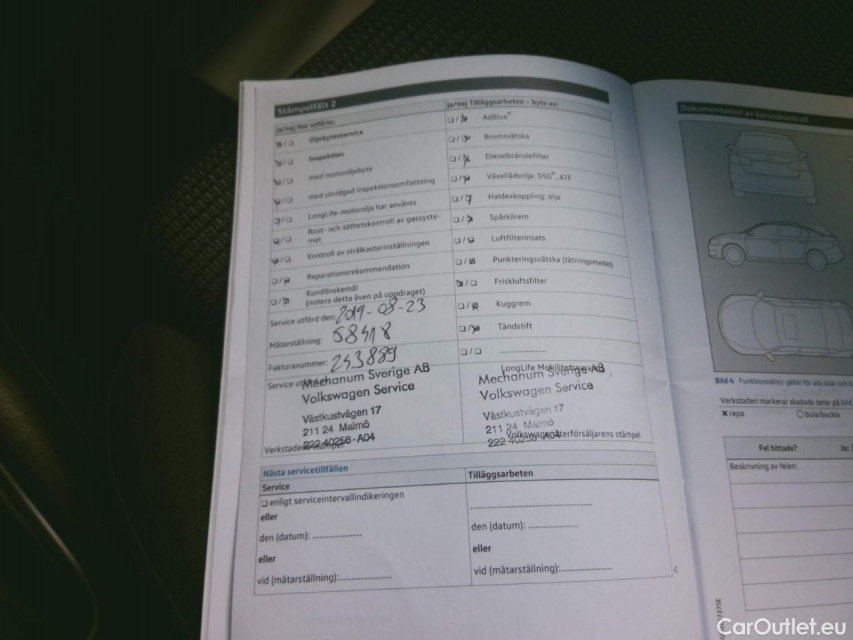 Stämpelfält 2
ja/nej Har utförts:
☒/☐ Oljebytesservice
☒/☐ Inspektion
☒/☐ med motoroljebyte
☒/☐ med utvidgad inspektionsomfattning
☒/☐ LongLife-motorolja har använts
☒/☐ Rost- och täthetskontroll av gassyste-
met
☒/☐ Kontroll av strålkastarinställningen
☐/☒ Reparationsrekommendation
☐/☒ Kundönskemål
(notera detta även på uppdraget)
Service utförd den: 2019-08-23
Mätarställning: 68418
Fakturanummer: 243889
Service
Mechanum Sverige AB
Volkswagen Service
Västkustvägen 17
211 24 Malmö
222 40258-A04
ja/nej Tilläggsarbeten – byte av:
☐/☒ AdBlue®
☐/☒ Bromsvätska
☐/☒ Dieselbränslefilter
☐/☒ Växellådsolja: DSG®, ATF
☐/☒ Haldexkoppling: olja
☐/☒ Spårkilrem
☐/☒ Luftfilterinsats
☐/☒ Punkteringsvätska (tätningsmedel)
☒/☐ Friskluftsfilter
☐/☒ Kuggrem
☐/☒ Tändstift
☐/☐ ....................
LongLife
Mechanum Sverige AB
Volkswagen Service
Västkustvägen 17
211 24 Malmö
Volkswagenåterförsäljarens stämpel
Nästa servicetillfällen
Service
☐ enligt serviceintervallindikeringen
eller
den (datum): ................
eller
vid (mätarställning):................
Tilläggsarbeten
........................................
den (datum): ................
eller
vid (mätarställning):................
Dokumentation av karosskontroll
Bild 4 Funktionsskiss: gäller för alla bilar och
Verkstaden markerar skadade delar på bild
✖ repa ○ bula/buckla
Fel hittade? Ja:
Beskrivning av felen:
CarOutlet.eu